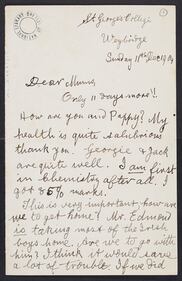 St George's College
Weybridge
Sunday 11th Dec 1904
Dear Mummy
Only 11 days more!!
How are you and Pappy? My
health is quite salubrious
thank you. Georgie & Jack
are quite well. I am first
in Chemistry after all. I
got 85% marks.
This is very important, how are
we to get home? Mr. Edmond
is taking most of the Irish
boys home. Are we to go with
him? I think it would save
a lot of trouble. If we did